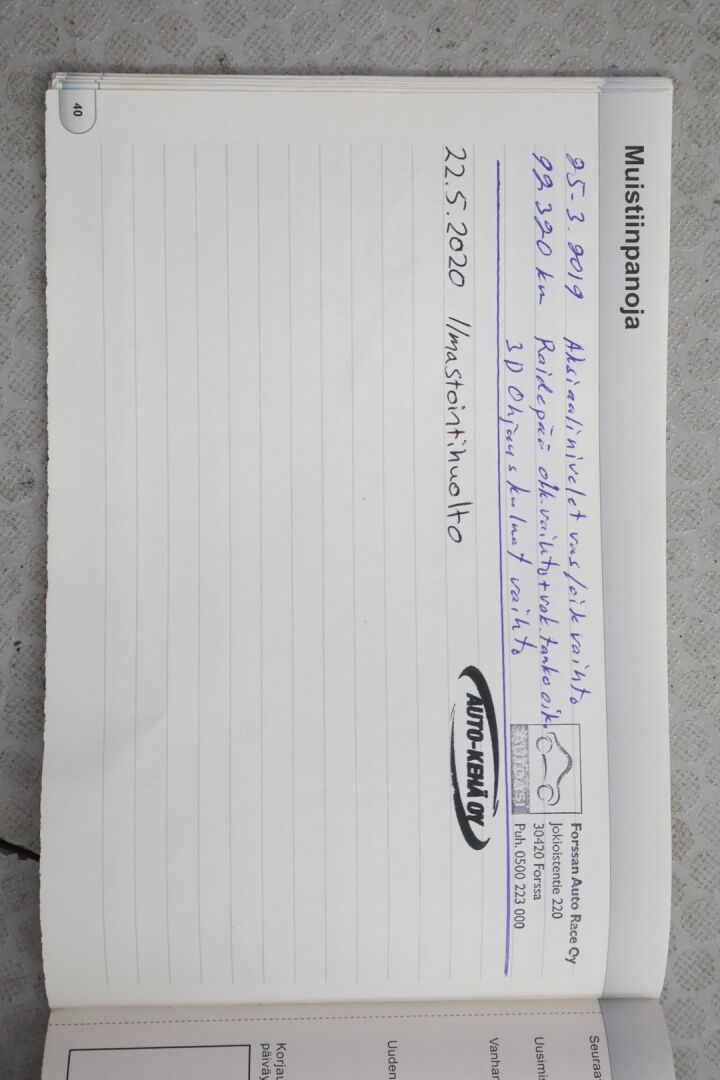 Muistiinpanoja
25-3.2019 Aksiaalinivelet vas/oik vaihto
99 320 km Raidepää oik.vaihto+vak.tanko oik.
3D Ohjauskulmat vaihto
AUTOASI
Forssan Auto Race Oy
Jokioistentie 220
30420 Forssa
Puh. 0500 223 000
22.5.2020 Ilmastointihuolto
AUTO-KEHÄ OY
40
Seuraa
Uusimi
Vanhan
Uuden
Korjau
päiväy